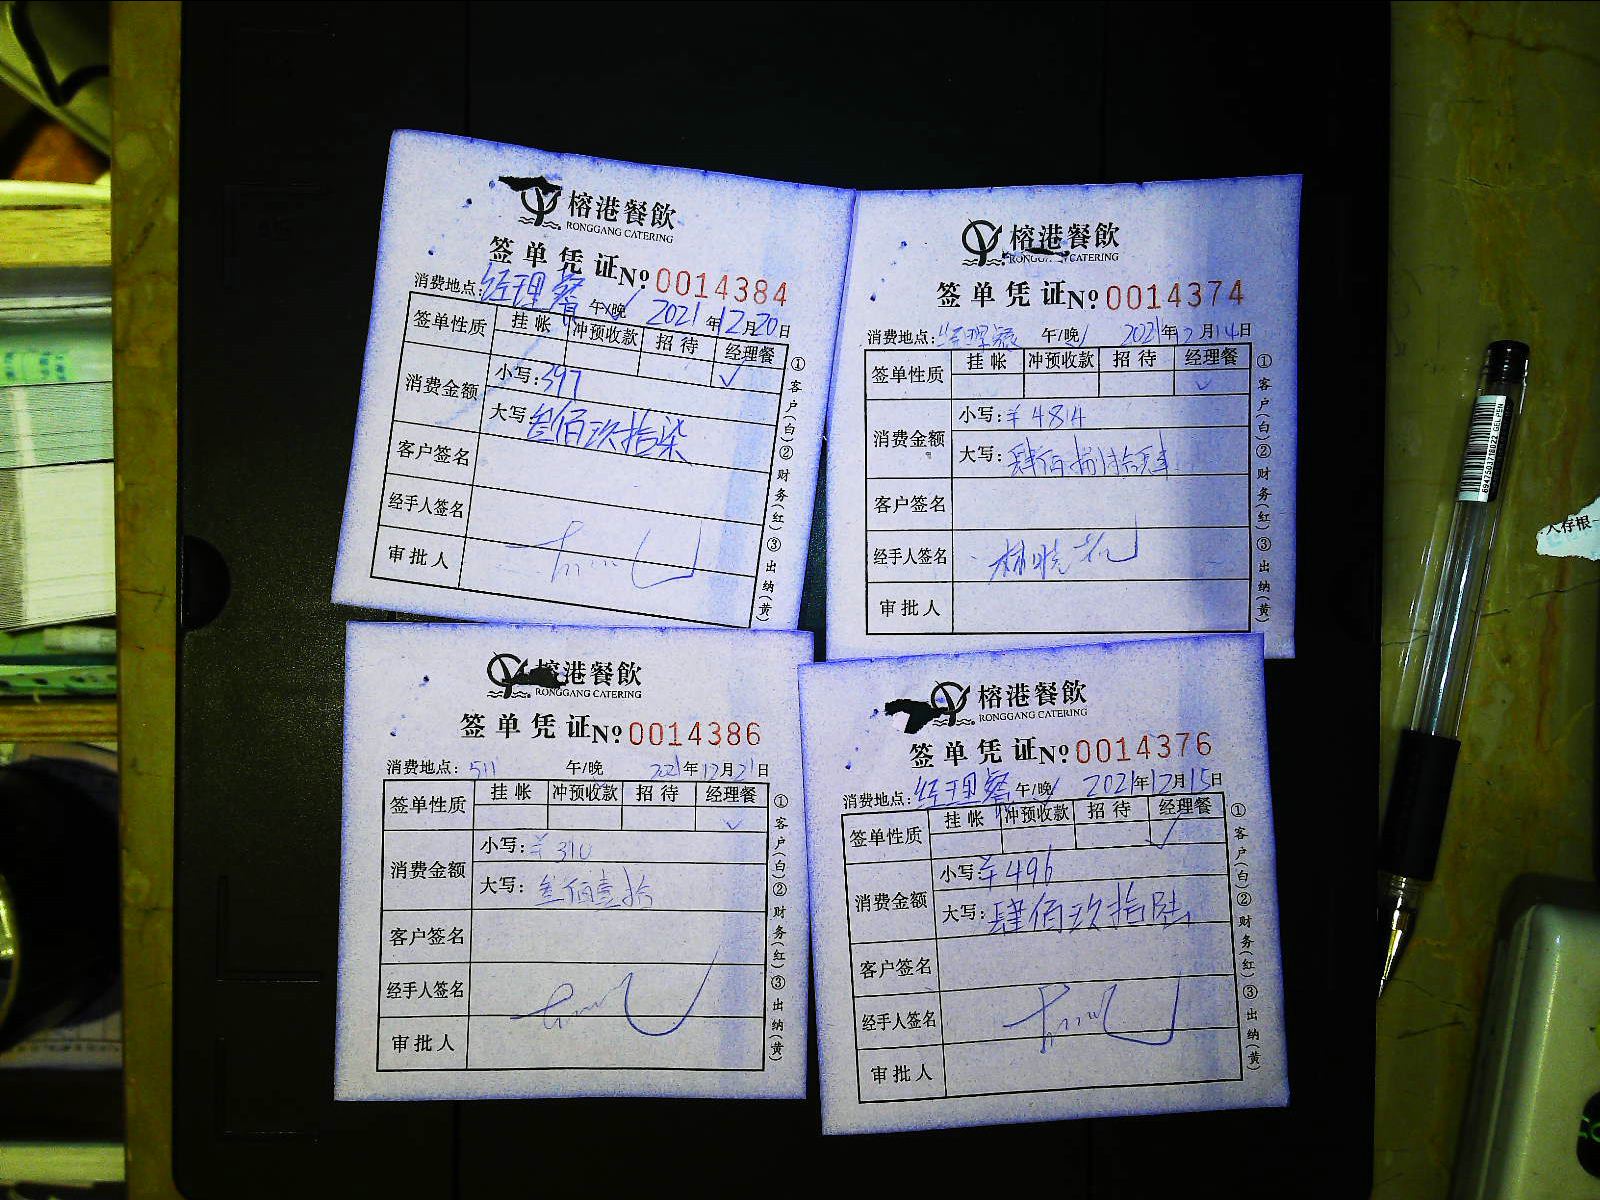 榕港餐飲
RONGGANG CATERING
签单凭证№0014384
消费地点:经理餐 午/晚 2021年12月20日
签单性质 挂帐 冲预收款 招待 经理餐
✓
消费金额 小写:397
大写:叁佰玖拾柒
客户签名
经手人签名
审批人
①客户(白)②财务(红)③出纳(黄)
榕港餐飲
CATERING
签单凭证№0014374
消费地点:经理餐 午/晚 2021年12月14日
签单性质 挂帐 冲预收款 招待 经理餐
✓
消费金额 小写:¥4814
大写:肆佰捌拾肆
客户签名
经手人签名 林晓
审批人
①客户(白)②财务(红)③出纳(黄)
榕港餐飲
RONGGANG CATERING
签单凭证№0014386
消费地点:511 午/晚 2021年12月21日
签单性质 挂帐 冲预收款 招待 经理餐
✓
消费金额 小写:¥310
大写:叁佰壹拾
客户签名
经手人签名
审批人
①客户(白)②财务(红)③出纳(黄)
榕港餐飲
RONGGANG CATERING
签单凭证№0014376
消费地点:经理餐 午/晚 2021年12月15日
签单性质 挂帐 冲预收款 招待 经理餐
✓
消费金额 小写:¥496
大写:肆佰玖拾陆
客户签名
经手人签名
审批人
①客户(白)②财务(红)③出纳(黄)
存根